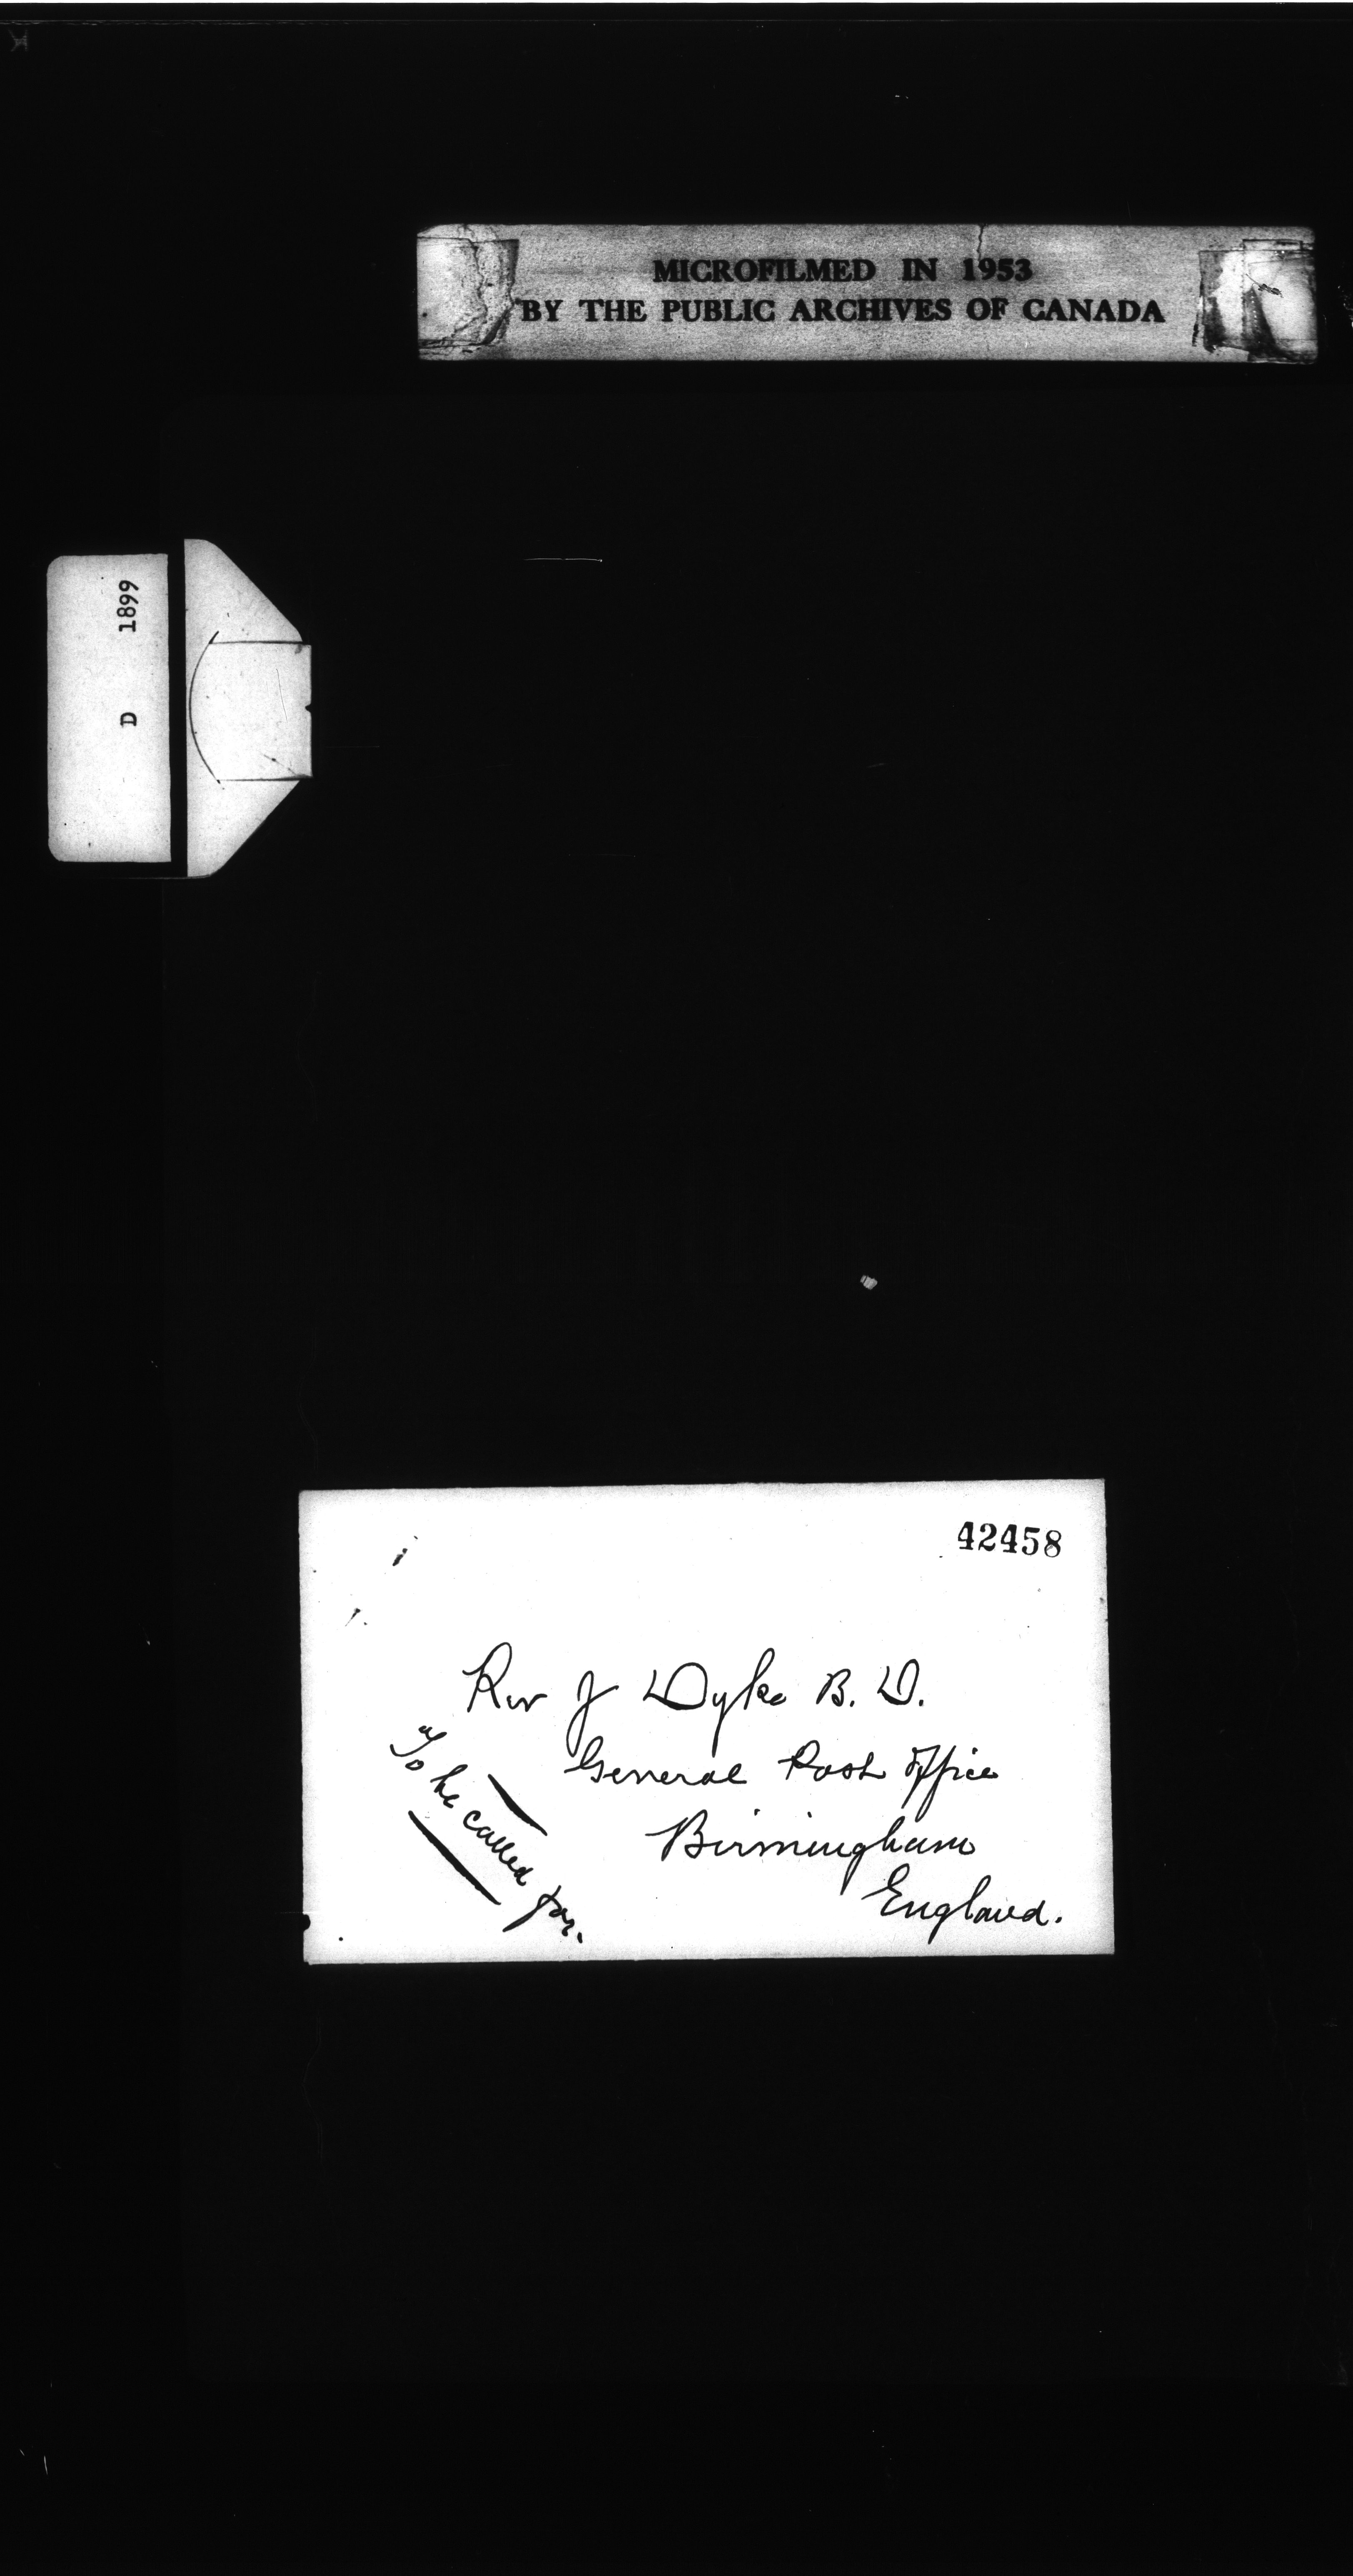 MICROFILMED IN 1953
BY THE PUBLIC ARCHIVES OF CANADA
D 1899
42458
Rev J Dyke B. D.
General Post Office
Birmingham
England.
To be called for.